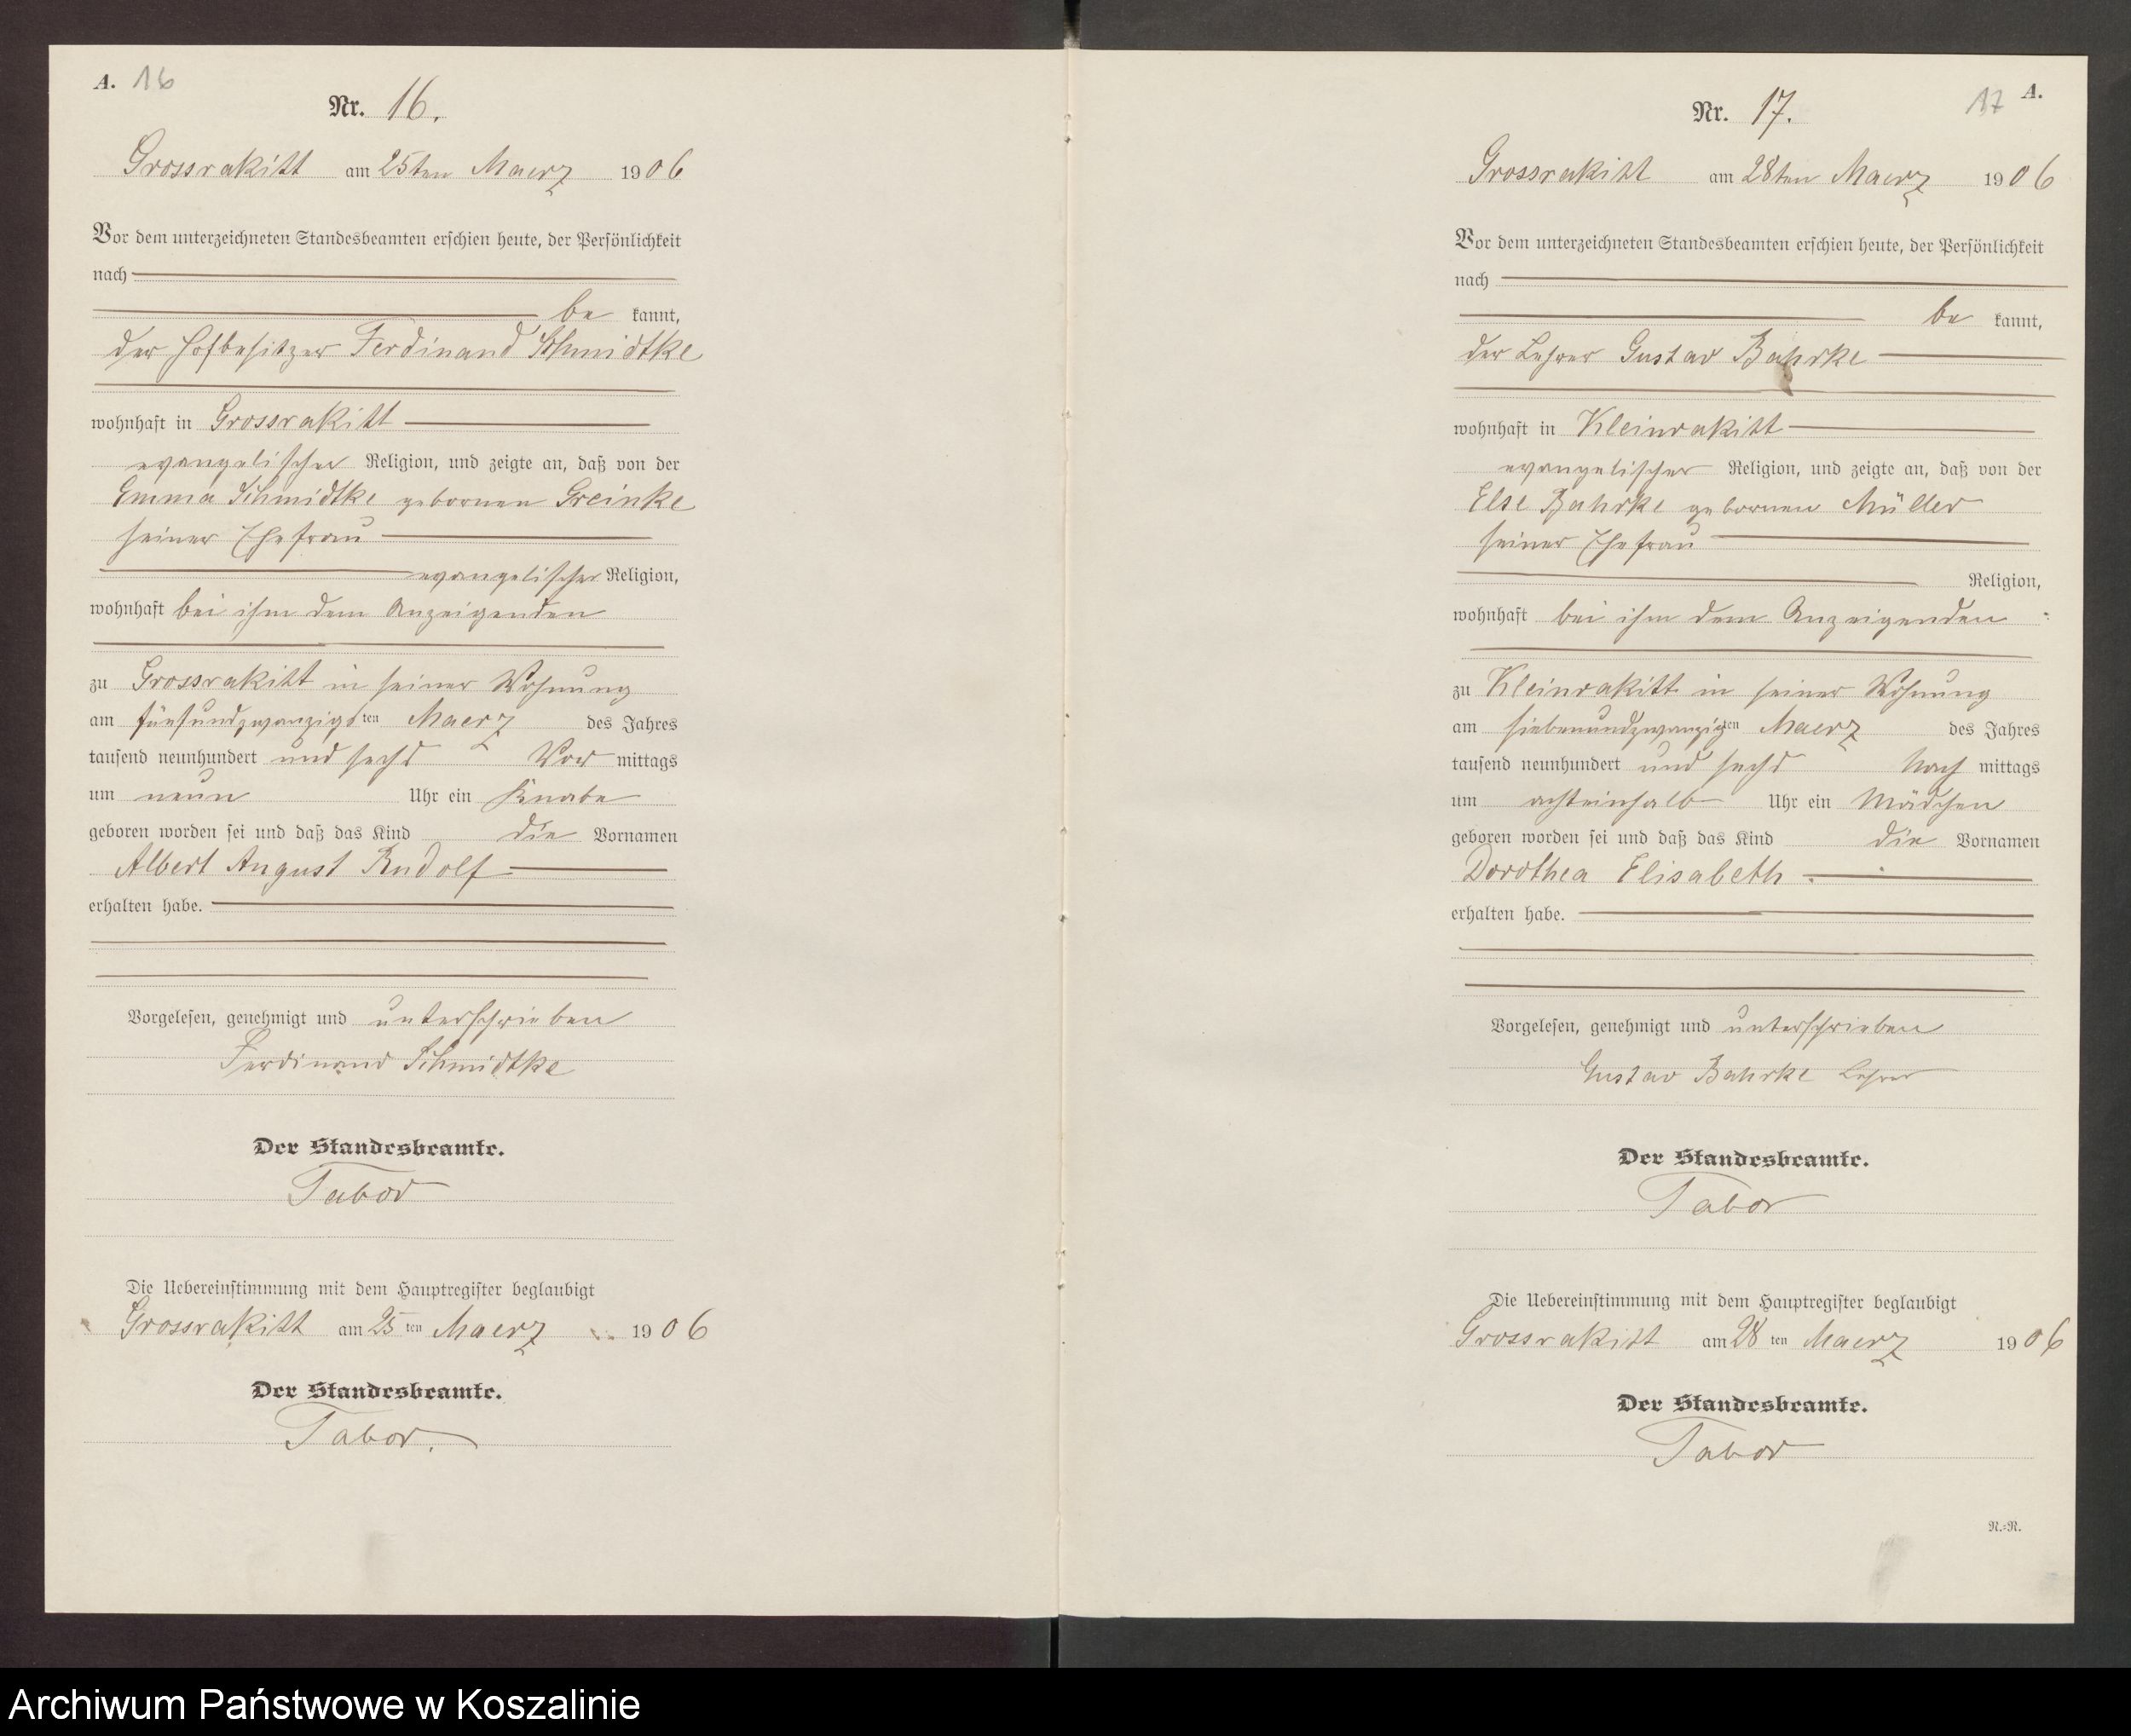 A. 16
Nr. 16.
Grossrakitt am 25ten Maerz 1906
Vor dem unterzeichneten Standesbeamten erschien heute, der Persönlichkeit
nach
be kannt,
der Hofbesitzer Ferdinand Schmidtke
wohnhaft in Grossrakitt
evangelischer Religion, und zeigte an, daß von der
Emma Schmidtke gebornen Greinke
seiner Ehefrau
evangelischer Religion,
wohnhaft bei ihm dem Anzeigenden
zu Grossrakitt in seiner Wohnung
am fünfundzwanzigsten Maerz des Jahres
tausend neunhundert und sechs Vor mittags
um neun Uhr ein Knabe
geboren worden sei und daß das Kind die Vornamen
Albert August Rudolf
erhalten habe.
Vorgelesen, genehmigt und unterschrieben
Ferdinand Schmidtke
Der Standesbeamte.
Tabor
Die Uebereinstimmung mit dem Hauptregister beglaubigt
Grossrakitt am 25 ten Maerz 1906
Der Standesbeamte.
Tabor.
17 A.
Nr. 17.
Grossrakitt am 28ten Maerz 1906
Vor dem unterzeichneten Standesbeamten erschien heute, der Persönlichkeit
nach
be kannt,
der Lehrer Gustav Bahrke
wohnhaft in Kleinrakitt
evangelischer Religion, und zeigte an, daß von der
Else Bahrke gebornen Müller
seiner Ehefrau
Religion,
wohnhaft bei ihm dem Anzeigenden
zu Kleinrakitt in seiner Wohnung
am siebenundzwanzigten Maerz des Jahres
tausend neunhundert und sechs Nach mittags
um achteinhalb Uhr ein Mädchen
geboren worden sei und daß das Kind die Vornamen
Dorothea Elisabeth.
erhalten habe.
Vorgelesen, genehmigt und unterschrieben
Gustav Bahrke Lehrer
Der Standesbeamte.
Tabor
Die Uebereinstimmung mit dem Hauptregister beglaubigt
Grossrakitt am 28 ten Maerz 1906
Der Standesbeamte.
Tabor
N.=R.
Archiwum Państwowe w Koszalinie